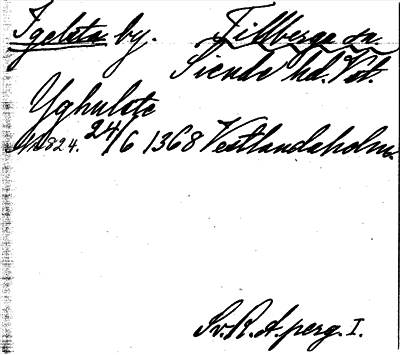 Igelsta by. Tillberga sn
Siende hd. Vst.
Yghulste
N:o 824. 24/6 1368 Vestlandaholm.
Sv. R. A. perg. I.